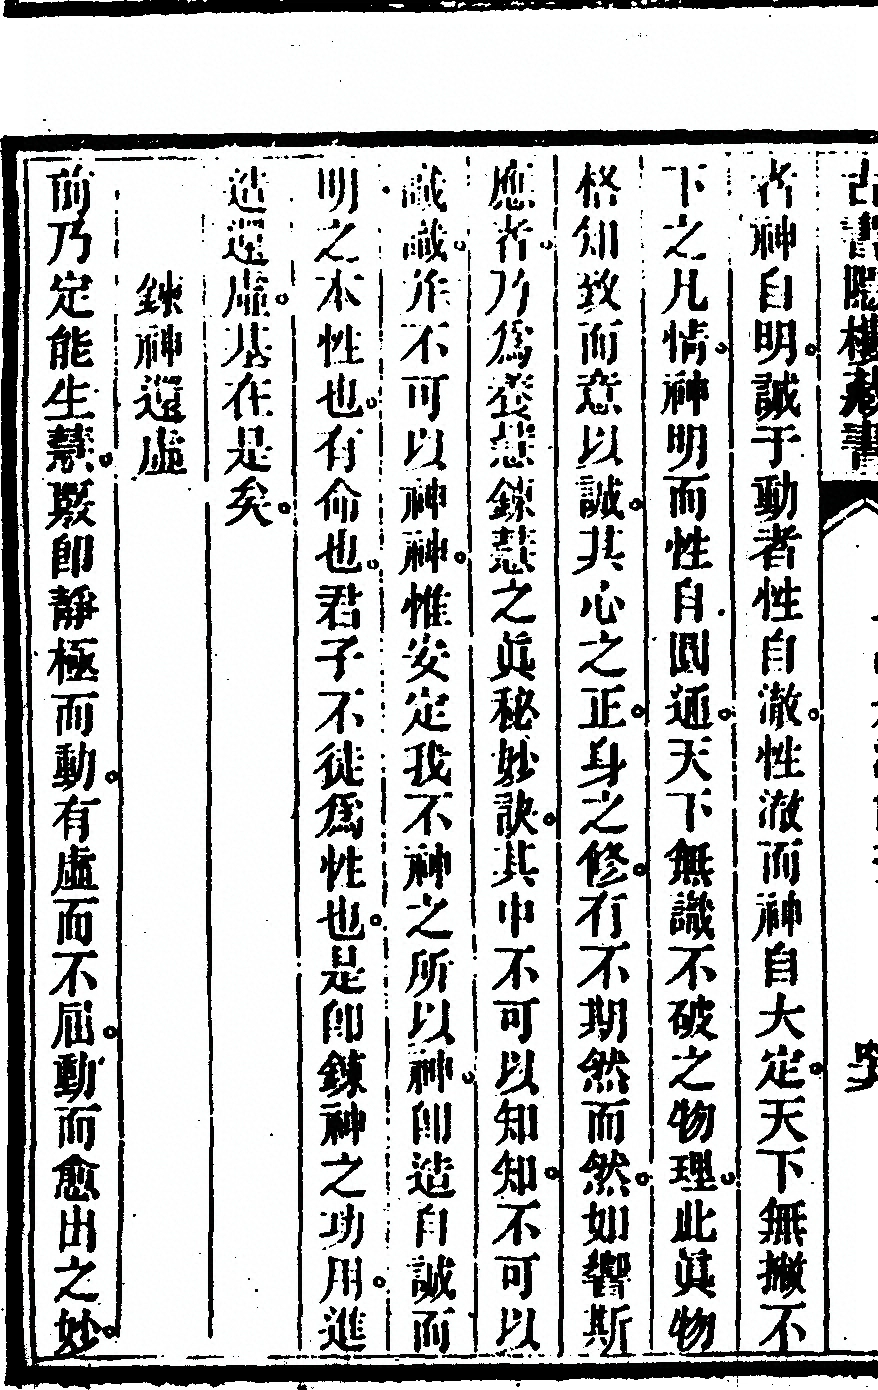 古書隱樓藏書
者神自明誠于動者性自澈性澈而神自大定天下無撇不
下之凡情神明而性自圓通天下無識不破之物理此眞物
格知致而意以誠其心之正身之修有不期然而然如響斯
應者乃爲發慧鍊慧之眞秘妙訣其中不可以知知不可以
識識并不可以神神惟安定我不神之所以神卽造自誠而
明之本性也有命也君子不徒爲性也是卽鍊神之功用進
造還虛基在是矣
鍊神還虛
前乃定能生慧聚卽靜極而動有虛而不屈動而愈出之妙